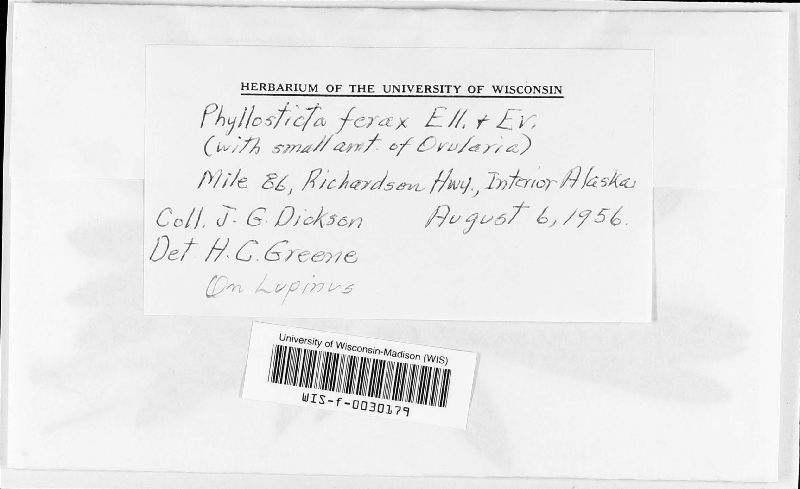 HERBARIUM OF THE UNIVERSITY OF WISCONSIN
Phyllosticta ferax Ell. + Ev.
(with small amt. of Ovularia)
Mile 86, Richardson Hwy., Interior Alaska
Coll. J. G. Dickson August 6, 1956.
Det H. C. Greene
On Lupinus
University of Wisconsin-Madison (WIS)
WIS-f-0030179